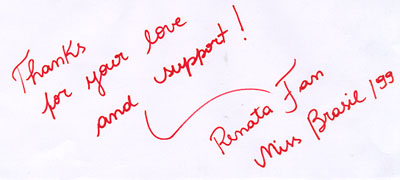 Thanks
for your love
and support!
Renata Fan
Miss Brasil 199